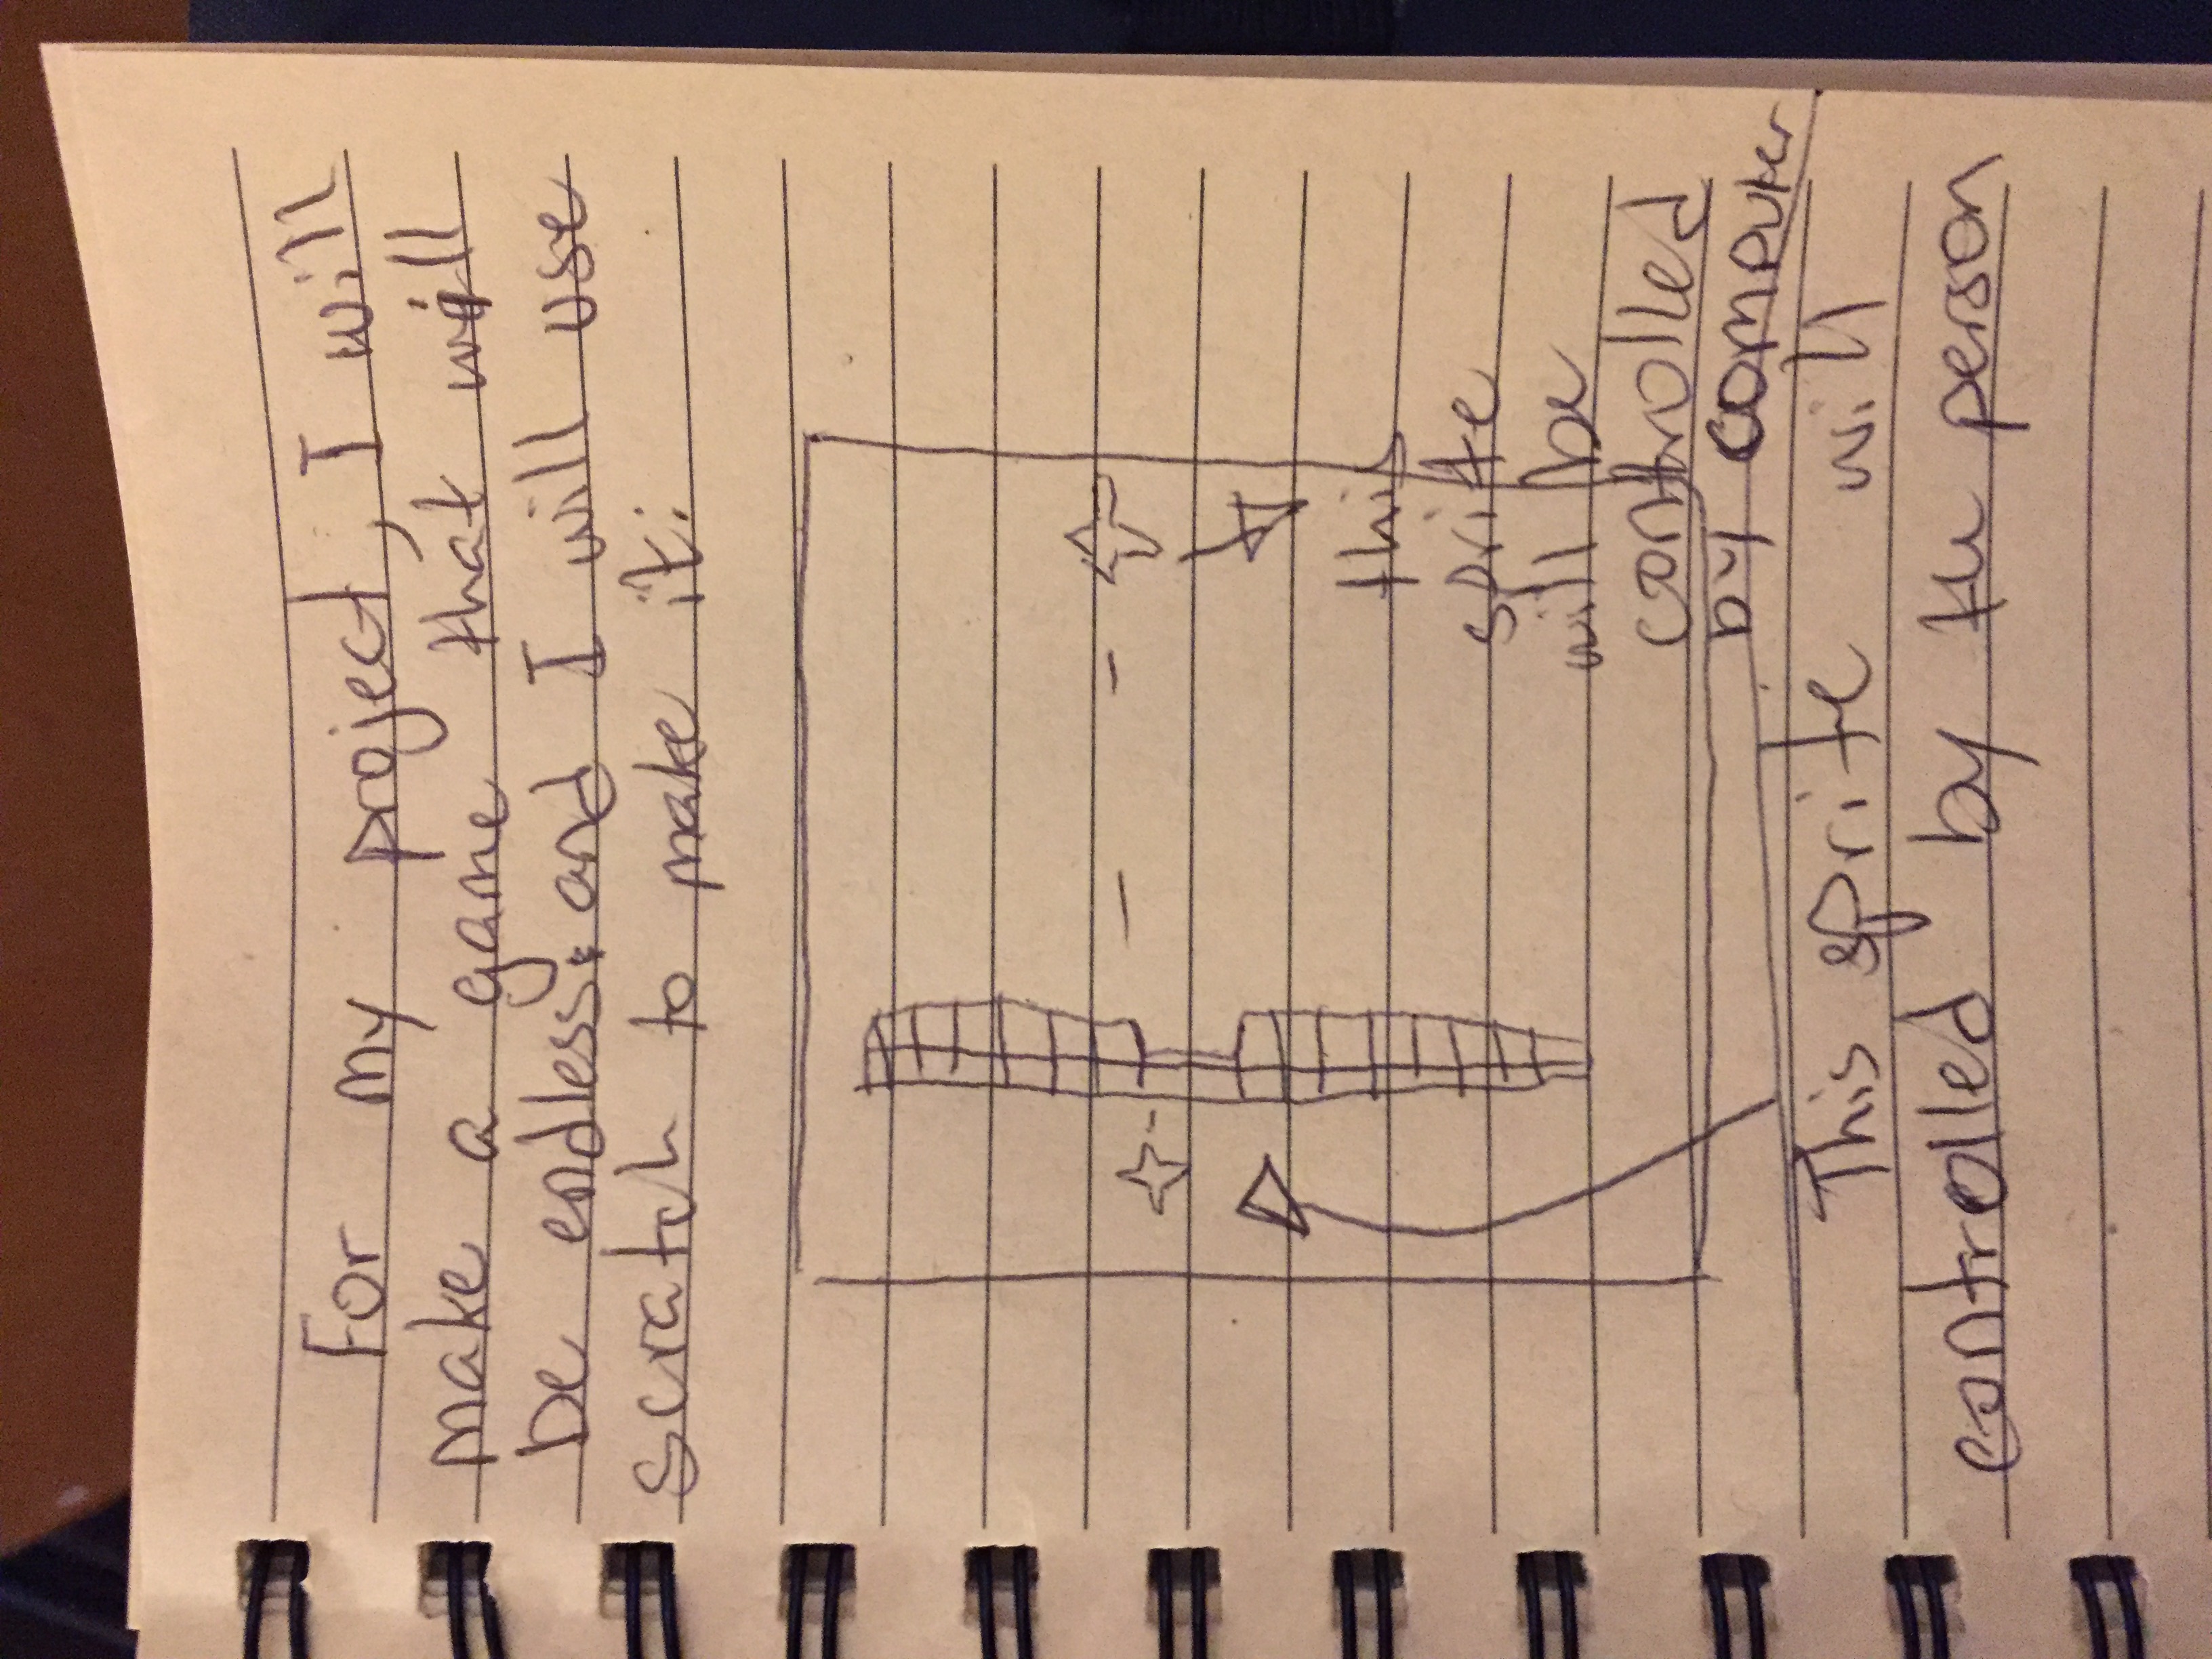 For my project, I will
make a game that will
be endless and I will use
scratch to make it.
this
sprite
will be
controlled
by computer
This sprite will
controlled by the person